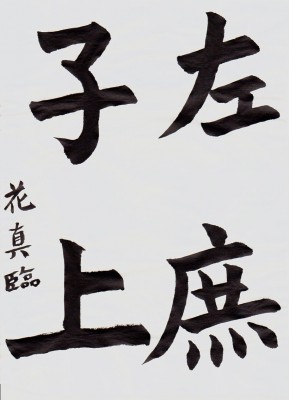 左庶
子上
花真臨